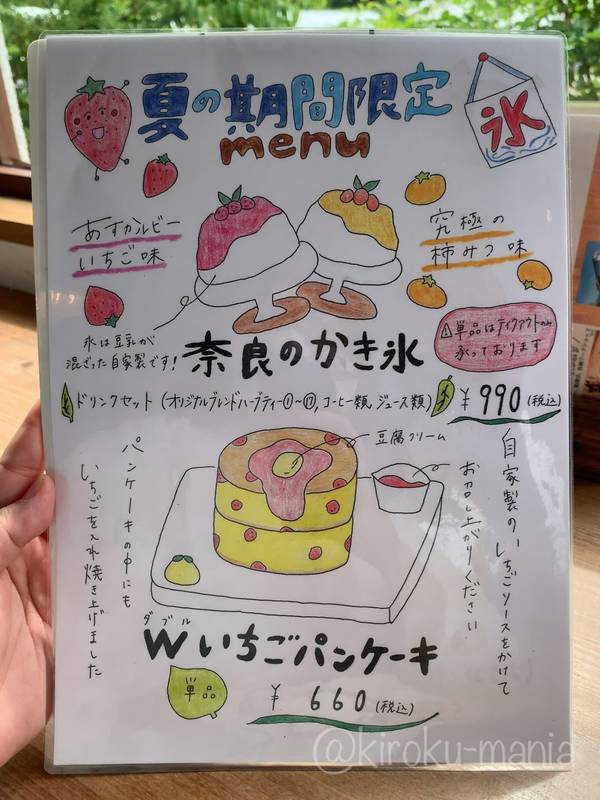 夏の期間限定
menu
氷
あすカルビー
いちご味
究極の
柿みつ味
氷は豆乳が
混ざった自家製です!
奈良のかき氷
⚠単品はテイクアウトのみ
承っております
ドリンクセット(オリジナルブレンドハーブティー①~⑰,コーヒー類,ジュース類)
¥990(税込)
豆腐クリーム
自家製のいちごソースをかけて
お召し上がりください
パンケーキの中にも
いちごを入れ焼き上げました
ダブル
Wいちごパンケーキ
単品
¥660(税込)
@kiroku-mania